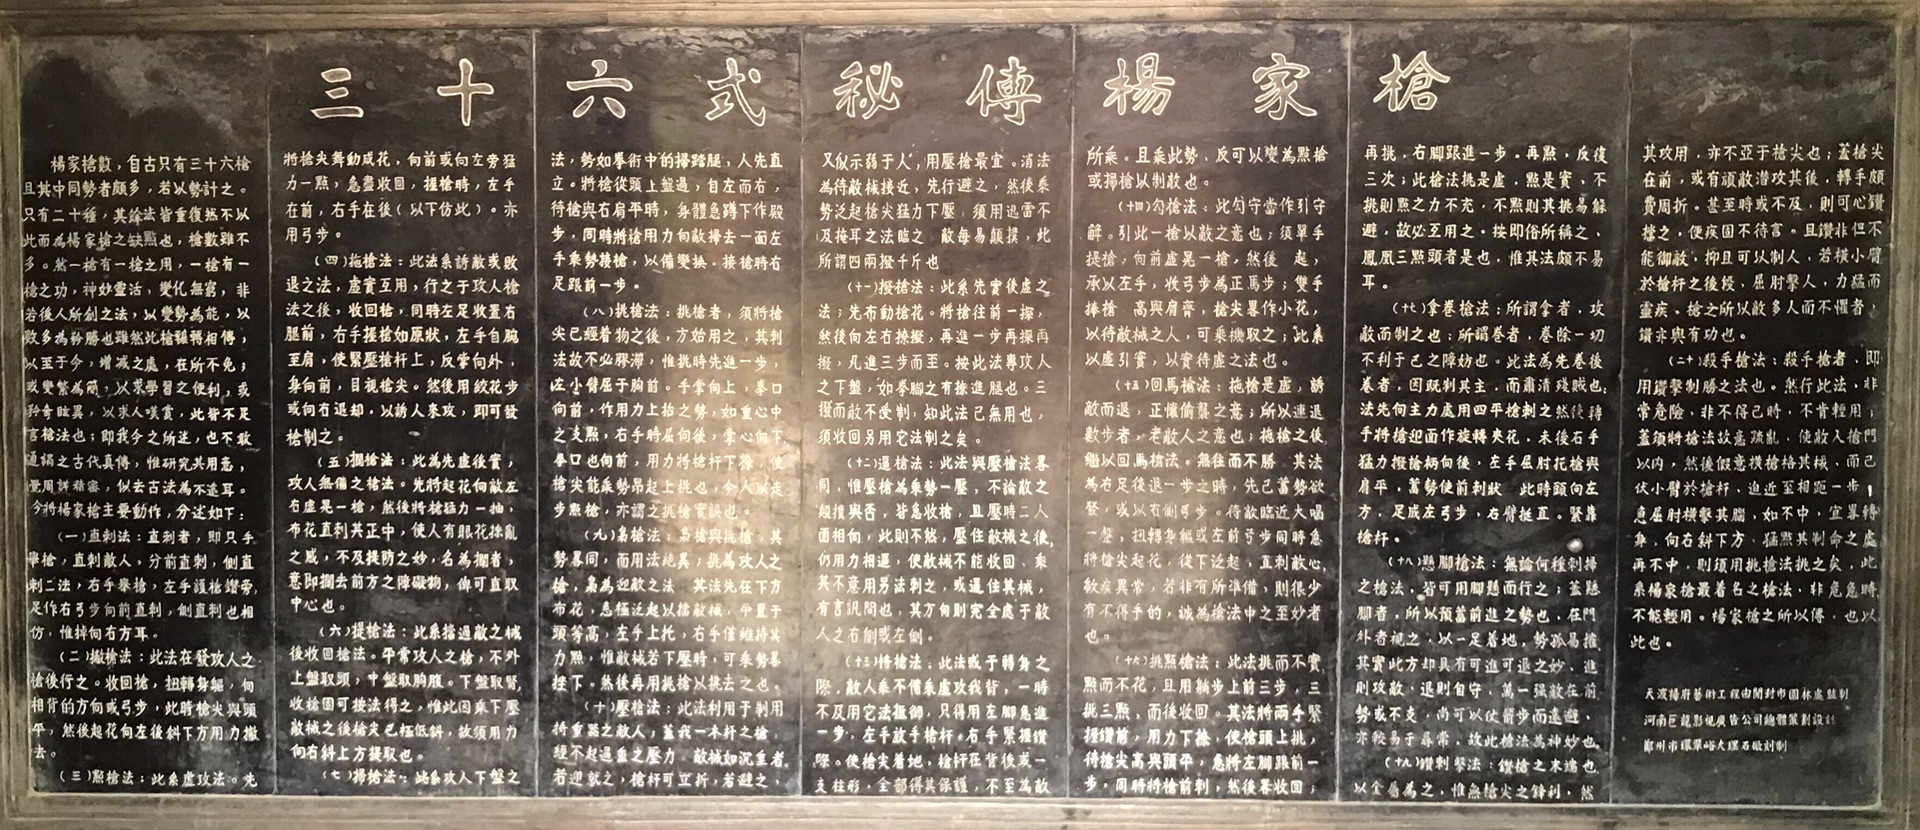 三十六式秘傳楊家槍
楊家槍數，自古只有三十六槍
且其中同勢者頗多，若以勢計之。
只有二十種，其餘法皆重復然不以
此而為楊家槍之缺點也，槍數雖不
多。然一槍有一槍之用，一槍有一
槍之功，神妙靈活，變化無窮，非
若後人所創之法，以變勢為能，以
數多為矜勝也雖然此槍輾轉相傳，
以至于今，增減之處，在所不免；
或變繁為簡，以求學習之便利，或
矜奇眩異，以求人嘆賞，此皆不足
言槍法也；即我今之所述，也不敢
通謂之古代真傳，惟研究其用意，
覺周詳精密，似去古法為不遠耳。
今將楊家槍主要動作，分述如下：
（一）直刺法：直刺者，即只手
舉槍，直刺敵人，分前直刺，側直
刺二法，右手舉槍，左手護槍鑽旁，
足作右弓步向前直刺，側直刺也相
仿，惟掉向右方耳。
（二）撤槍法：此法在發攻人之
槍後行之。收回槍，扭轉身軀，向
相背的方向或弓步，此時槍尖與頭
平，然後起花向左後斜下方用力撤
去。
（三）點槍法：此系虛攻法。先
將槍尖舞動成花，向前或向左旁猛
力一點，急盡收回，握槍時，左手
在前，右手在後（以下仿此）。亦
用弓步。
（四）拖槍法：此法系誘敵或敗
退之法，虛實互用，行之于攻人槍
法之後，收回槍，同時左足收置右
腿前，右手握槍如原狀，左手自腕
至肩，使緊壓槍杆上，反掌向外，
身向前，目視槍尖。然後用絞花步
或向右退却，以誘人來攻，即可發
槍制之。
（五）攔槍法：此為先虛後實，
攻人無備之槍法。先將起花向敵左
右虛晃一槍，然後將槍猛力一抽，
布花直刺其正中，使人有眼花繚亂
之感，不及提防之妙，名為攔者，
意即攔去前方之障礙物，俾可直取
中心也。
（六）提槍法：此系搭過敵之械
後收回槍法。平常攻人之槍，不外
上盤取頭，中盤取胸腹。下盤取腎，
收槍固可接法得之，惟此因乘下壓
敵械之後槍尖已極低斜，故須用力
向右斜上方提取也。
（七）掃槍法：此系攻人下盤之
法，勢如拳術中的掃蹚腿，人先直
立。將槍從頭上盤過，自左而右，
待槍與右肩平時，身體急蹲下作殿
步，同時將槍用力向敵掃去一面左
手乘勢接槍，以備變換。接槍時右
足跟前一步。
（八）挑槍法：挑槍者，須將槍
尖已經着物之後，方始用之，其刺
法故不必膠滯，惟挑時先進一步，
左小臂屈于胸前。手掌向上，拳口
向前，作用力上抬之勢，如重心中
之支點，右手時屈向後，掌心向下，
拳口也向前，用力將槍杆下捺，使
槍尖能乘勢昂起上挑也，今人以走
步點槍，亦謂之挑槍實誤也。
（九）梟槍法：梟槍與挑槍，其
勢畧同，而用法絕異；挑為攻人之
槍，梟為迎敵之法 其法先在下方
布花，急極泛起以搶敵械，平置于
頭等高，左手上托，右手僅維持其
力點，惟敵械若下壓時，可乘勢畧
挫下。然後再用挑槍以挑去之也。
（十）壓槍法：此法利用于制用
持重器之敵人；蓋我一木杆之槍，
經不起過重之壓力 敵械如沉重者，
若迎就之，槍杆可立折，若避之，
又似示弱于人，用壓槍最宜。消法
為待敵械接近，先行避之，然後乘
勢泛起槍尖猛力下壓，須用迅雷不
及掩耳之法臨之 敵每易顛撲，此
所謂四兩撥千斤也
（十一）撥槍法：此系先實後虛之
法；先布動槍花。將槍往前一探，
然後向左右撩撥，再進一步再探再
撥，凡進三步而至。按此法專攻人
之下盤，如拳脚之有捺進腿也。三
撥而敵不受制，知此法已無用也，
須收回另用它法制之矣。
（十二）逼槍法：此法與壓槍法畧
同，惟壓槍為乘勢一壓，不論敵之
顛撲與否，皆急收槍，且壓時二人
面相向，此則不然，壓住敵械之後，
仍用力相逼，使敵械不能收回、乘
其不意用另法刺之，或逼住其械，
有言訊問也，其方向則完全處于敵
人之右側或左側。
（十三）倚槍法：此法或于轉身之
際，敵人乘不備乘虛攻我背，一時
不及用它法抵御，只得用左脚急進
一步，左手放手槍杆。右手緊握鑽
際。使槍尖着地，槍杆在背後成一
支柱形，全部得其保護，不至為敵
所乘。且乘此勢，反可以變為點槍
或掃槍以制敵也。
（十四）勾槍法：此勾守當作引守
解。引此一槍以敵之意也；須單手
提槍，向前虛晃一槍，然後 起，
承以左手，收弓步為正馬步；雙手
捧槍 高與肩齊，槍尖畧作小花，
以待敵械之人，可乘機取之；此系
以虛引實，以實待虛之法也。
（十五）回馬槍法：拖槍是虛，誘
敵而退，正懷偷襲之意；所以進退
數步者，老敵人之意也；拖槍之後
繼以回馬槍法。無往而不勝 其法
為右足後退一步之時，先已蓄勢欲
發，或以右側弓步。待敵臨近大喝
一聲，扭轉身軀或左前弓步同時急
將槍尖起花，從下泛起，直刺敵心，
敏疾異常，若非有所準備，則很少
有不得手的，誠為槍法中之至妙者
也。
（十六）挑點槍法：此法挑而不實
點而不花，且用躺步上前三步，三
挑三點，而後收回。其法將兩手緊
握鑽前，用力下捺，使槍頭上挑，
待槍尖高與頭平，急將左脚跟前一
步，同時將槍前刺，然後畧收回；
再挑，右脚跟進一步。再點，反復
三次；此槍法挑是虛，點是實，不
挑則點之力不充，不點則其挑易躲
避，故必至用之。按即俗所稱之，
鳳凰三點頭者是也，惟其法頗不易
耳。
（十七）拿卷槍法：所謂拿者，攻
敵而制之也；所謂卷者，卷除一切
不利于己之障妨也。此法為先卷後
卷者，因既制其主，而肅清殘賊也；
法先向主力處用四平槍刺之然後轉
手將槍迎面作旋轉夾花，未後右手
猛力撥搶柄向後，左手屈肘花槍與
肩平，蓄勢使前刺狀 此時頭向左
方，足成左弓步，右臂挺直。緊靠
槍杆。
（十八）懸脚槍法：無論何種刺掃
之槍法，皆可用脚懸而行之；蓋懸
脚者，所以預蓄前進之勢也，在門
外者視之，以一足着地，勢孤易推
其實此方却具有可進可退之妙、進
則攻敵，退則自守，萬一強敵在前
勢或不支，尚可以仗箭步而遠避、
亦較易于尋常，故此槍法為神妙也，
（十九）鑽刺擊法：鑽槍之末端也
以金屬為之，惟無槍尖之鋒利，然
其攻用，亦不亞于槍尖也；蓋槍尖
在前，或有頑敵潛攻其後，轉手頗
費周折。甚至時或不及，則可心鑽
搶之，便疾固不待言。且鑽非但不
能御敵，抑且可以制人，若橫小臂
於槍杆之後段，屈肘擊人，力猛而
靈疾。槍之所以敵多人而不懼者，
鑽亦與有功也。
（二十）殺手槍法：殺手槍者，即
用鑽擊制勝之法也。然行此法，非
常危險，非不得已時，不肯輕用；
蓋須將槍法故意疏亂，使敵入槍門
以內，然後假意橫槍格其械、而己
伏小臂於槍杆、迫近至相距一步，
急屈肘橫擊其腦，如不中，宜畧轉
身，向右斜下方，猛點其制命之處
再不中，則須用挑槍法挑之矣，此
系楊家槍最著名之槍法，非危急時，
不能輕用。楊家槍之所以傳，也以
此也。
天波楊府藝術工程由開封市園林處監制
河南巨龍影視廣告公司總體策劃設計
鄭州市環翠峪大理石廠刻制